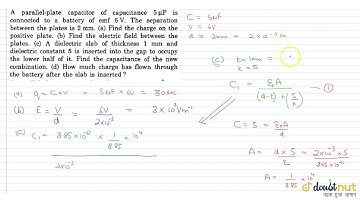 A parallel-plate capacitor of capacitance 5 μF is
connected to a battery of emf 6 V. The separation
between the plates is 2 mm. (a) Find the charge on the
positive plate. (b) Find the electric field between the
plates. (c) A dielectric slab of thickness 1 mm and
dielectric constant 5 is inserted into the gap to occupy
the lower half of it. Find the capacitance of the new
combination. (d) How much charge has flown through
the battery after the slab is inserted ?
(a) q = C×V = 5μF × 6V = 30μC
(b) E = V/d = 6V/2×10⁻³ = 3×10³ Vm⁻¹
(c) C₁ = 8.85×10⁻¹² × 1/8.85 × 10⁴
2×10⁻³
C = 5μF
V = 6V
d = 2mm = 2×10⁻³ m
(c) t = 1mm =
k = 5
C₁ = ε₀A/((d-t)+(t/k)) — ①
C = 5 = ε₀A/d
A = d×5/ε₀ = 2×10⁻³×5/8.85×10⁻¹²
A = 1/8.85 × 10⁴
doubtnut